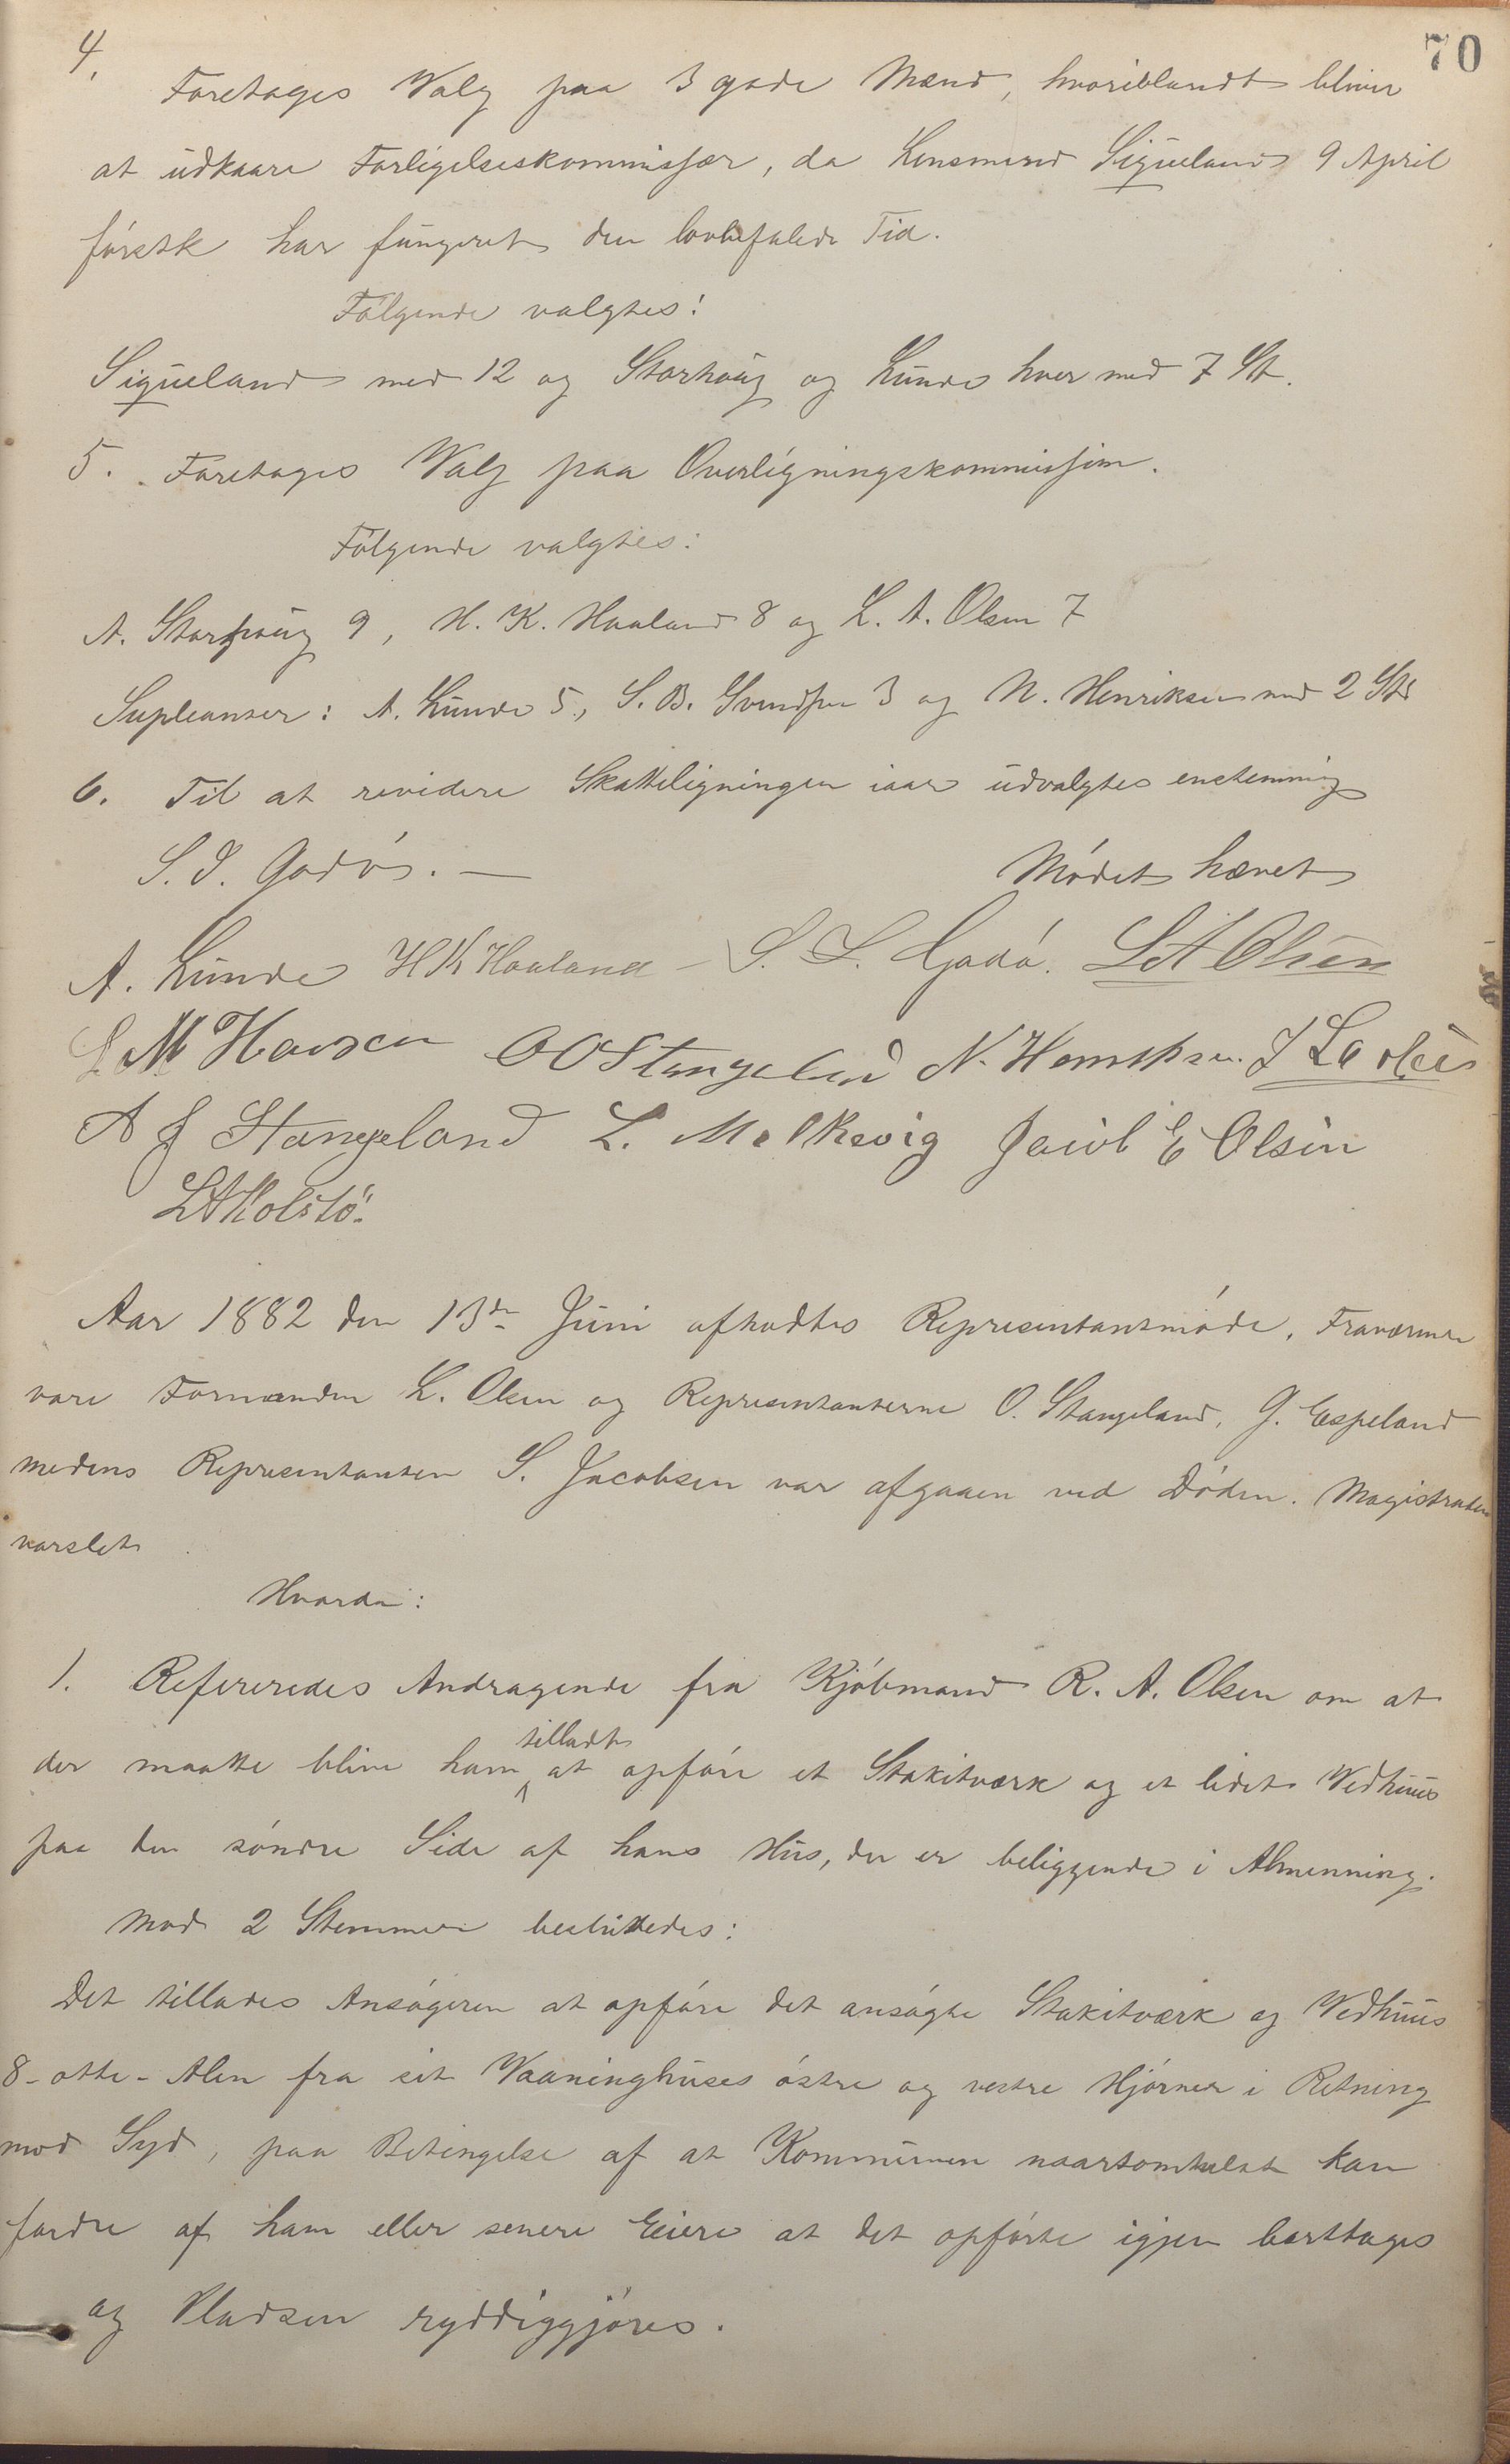 70
4.
Foretages Valg paa 3 gode Mænd, hvoriblandt bliver
at udkaare Forligelseskommissær, da Lensmand Sigveland 9 April
førstk har fungeret den lovbefalede Tid.
Følgende valgtes:
Sigveland med 12 og Storhaug og Lunde hver med 7 St.
5. Foretages Valg paa Overligningskommission.
Følgende valgtes:
A. Storhaug 9, H. K. Haaland 8 og L. A. Olsen 7
Supleanter: A. Lunde 5, S. B. Svendsen 3 og N. Henriksen med 2 Str
6. Til at revidere Skatteligningen iaar udvalgtes enstemmig
S. S. Gadø. —
Mødet hævet
A. Lunde H Kr Haaland - S. S. Gadø. L A Olsen
L M Hansen O O Stangeland N. Henriksen. J
A J Stangeland L. Melkevig Jacob E Olsen
L A Kolstø.
Aar 1882 den 13de Juni afholdtes Representantmøde. Fraværende
vare Formanden L. Olsen og Representanterne O. Stangeland, G. Espeland
medens Representanten S. Jacobsen var afgaaen ved Døden. Magistraten
varslet
Hvorda:
1. Refereredes Andragende fra Kjøbmand R. A. Olsen om at
der maatte blive ham tilladt at opføre et Stakitværk og et lidet Vedhuus
paa den søndre Side af hans Hus, der er beliggende i Almenning.
Mod 2 Stemmer besluttedes:
Det tillades Ansøgeren at opføre det ansøgte Stakitværk og Vedhuus
8 - otte - Alen fra sit Vaaninghuses østre og vestre Hjørner i Retning
mod Syd, paa Betingelse af at Kommunen naarsomhelst kan
fordre af ham eller senere Eiere at det opførte igjen borttages
og Pladsen ryddiggjøres.